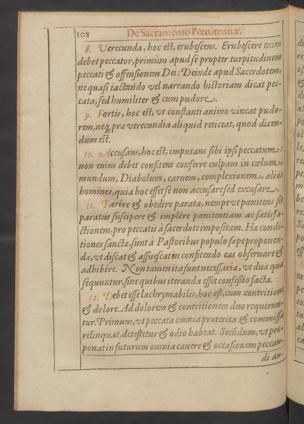 108
De Sacramento Pœnitentiæ.
8. Verecunda, hoc est, erubescens. Erubescere enim
debet peccator, primùm apud se propter turpitudinem
peccati & offensionem Dei: Deinde apud Sacerdotem,
ne quasi iactando vel narrando historiam dicat pec-
cata, sed humiliter & cum pudore.
9. Fortis, hoc est, vt constanti animo vincat pudo-
rem, neq; præ verecundia aliquid reticeat, quod dicen-
dum est.
10. Accusans, hoc est, imputans sibi ipsi peccatum:
non enim debet confitens conferre culpam in cœlum,
mundum, Diabolum, carnem, complexionem, alios
homines, quia hoc esset se non accusare sed excusare.
11. Parêre & obedire parata, nempe vt pœnitens sit
paratus suscipere & implêre pœnitentiam ac satisfa-
ctionem, pro peccatis à sacerdote impositam. Ha condi-
tiones sanctæ, sunt à Pastoribus populo sæpe proponen-
dæ, vt discat & assuescat in confitendo eas obseruare &
adhibêre. Non tamen ita sunt necessariæ, vt duæ quæ
sequuntur, sine quibus iteranda esset confessio facta.
12. Debet esse lachrymabilis, hoc est, cum contritione
& dolore. Ad dolorem & contritionem duo requirun-
tur. Primum, vt peccata omnia præterita & commissa
relinquat, detestetur & odio habeat. Secundum, vt pro-
ponat in futurum omnia cauere & occasionem peccan-
di au-